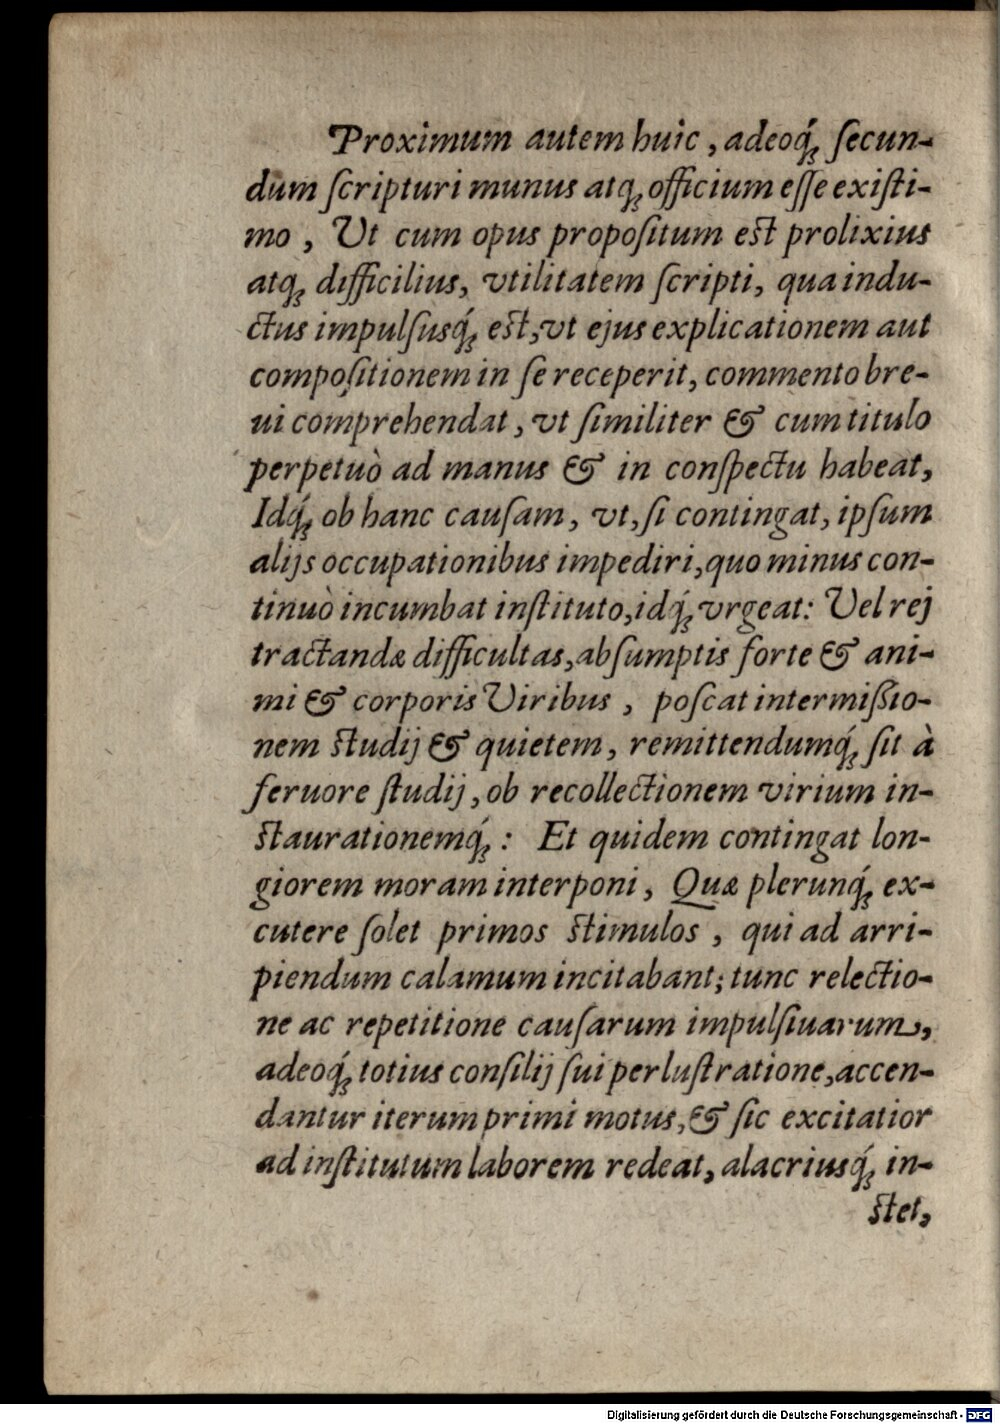 Proximum autem huic, adeoq́ꝫ ſecun-
dum ſcripturi munus atqꝫ officium eſſe exiſti-
mo, Ut cum opus propoſitum eſt prolixius
atqꝫ difficilius, vtilitatem ſcripti, qua indu-
ctus impulſusq́ꝫ eſt, vt ejus explicationem aut
compoſitionem in ſe receperit, commento bre-
ui comprehendat, vt ſimiliter & cum titulo
perpetuò ad manus & in conſpectu habeat,
Idq́ꝫ ob hanc cauſam, vt, ſi contingat, ipſum
alijs occupationibus impediri, quo minus con-
tinuò incumbat inſtituto, idq́ꝫ vrgeat: Vel rej
tractandæ difficultas, abſumptis forte & ani-
mi & corporis Viribus, poſcat intermißio-
nem ſtudij & quietem, remittendumq́ꝫ ſit à
feruore ſtudij, ob recollectionem virium in-
ſtaurationemq́ꝫ: Et quidem contingat lon-
giorem moram interponi, Quæ plerunq́ꝫ ex-
cutere ſolet primos ſtimulos, qui ad arri-
piendum calamum incitabant; tunc relectio-
ne ac repetitione cauſarum impulſiuarum,
adeoq́ꝫ totius conſilij ſui perluſtratione, accen-
dantur iterum primi motus, & ſic excitatior
ad inſtitutum laborem redeat, alacriusq́ꝫ in-
ſtet,
Digitalisierung gefördert durch die Deutsche Forschungsgemeinschaft - DFG